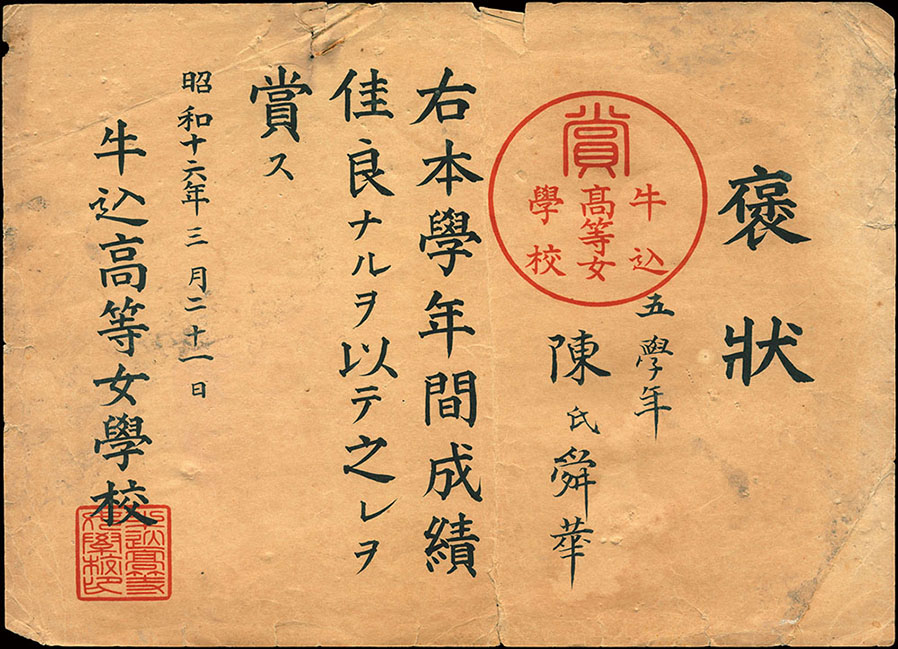 褒狀
賞
牛込
高等女
學校
五學年
陳氏舜華
右本學年間成績
佳良ナルヲ以テ之レヲ
賞ス
昭和十六年三月二十一日
牛込高等女學校
牛込高等
女學校印